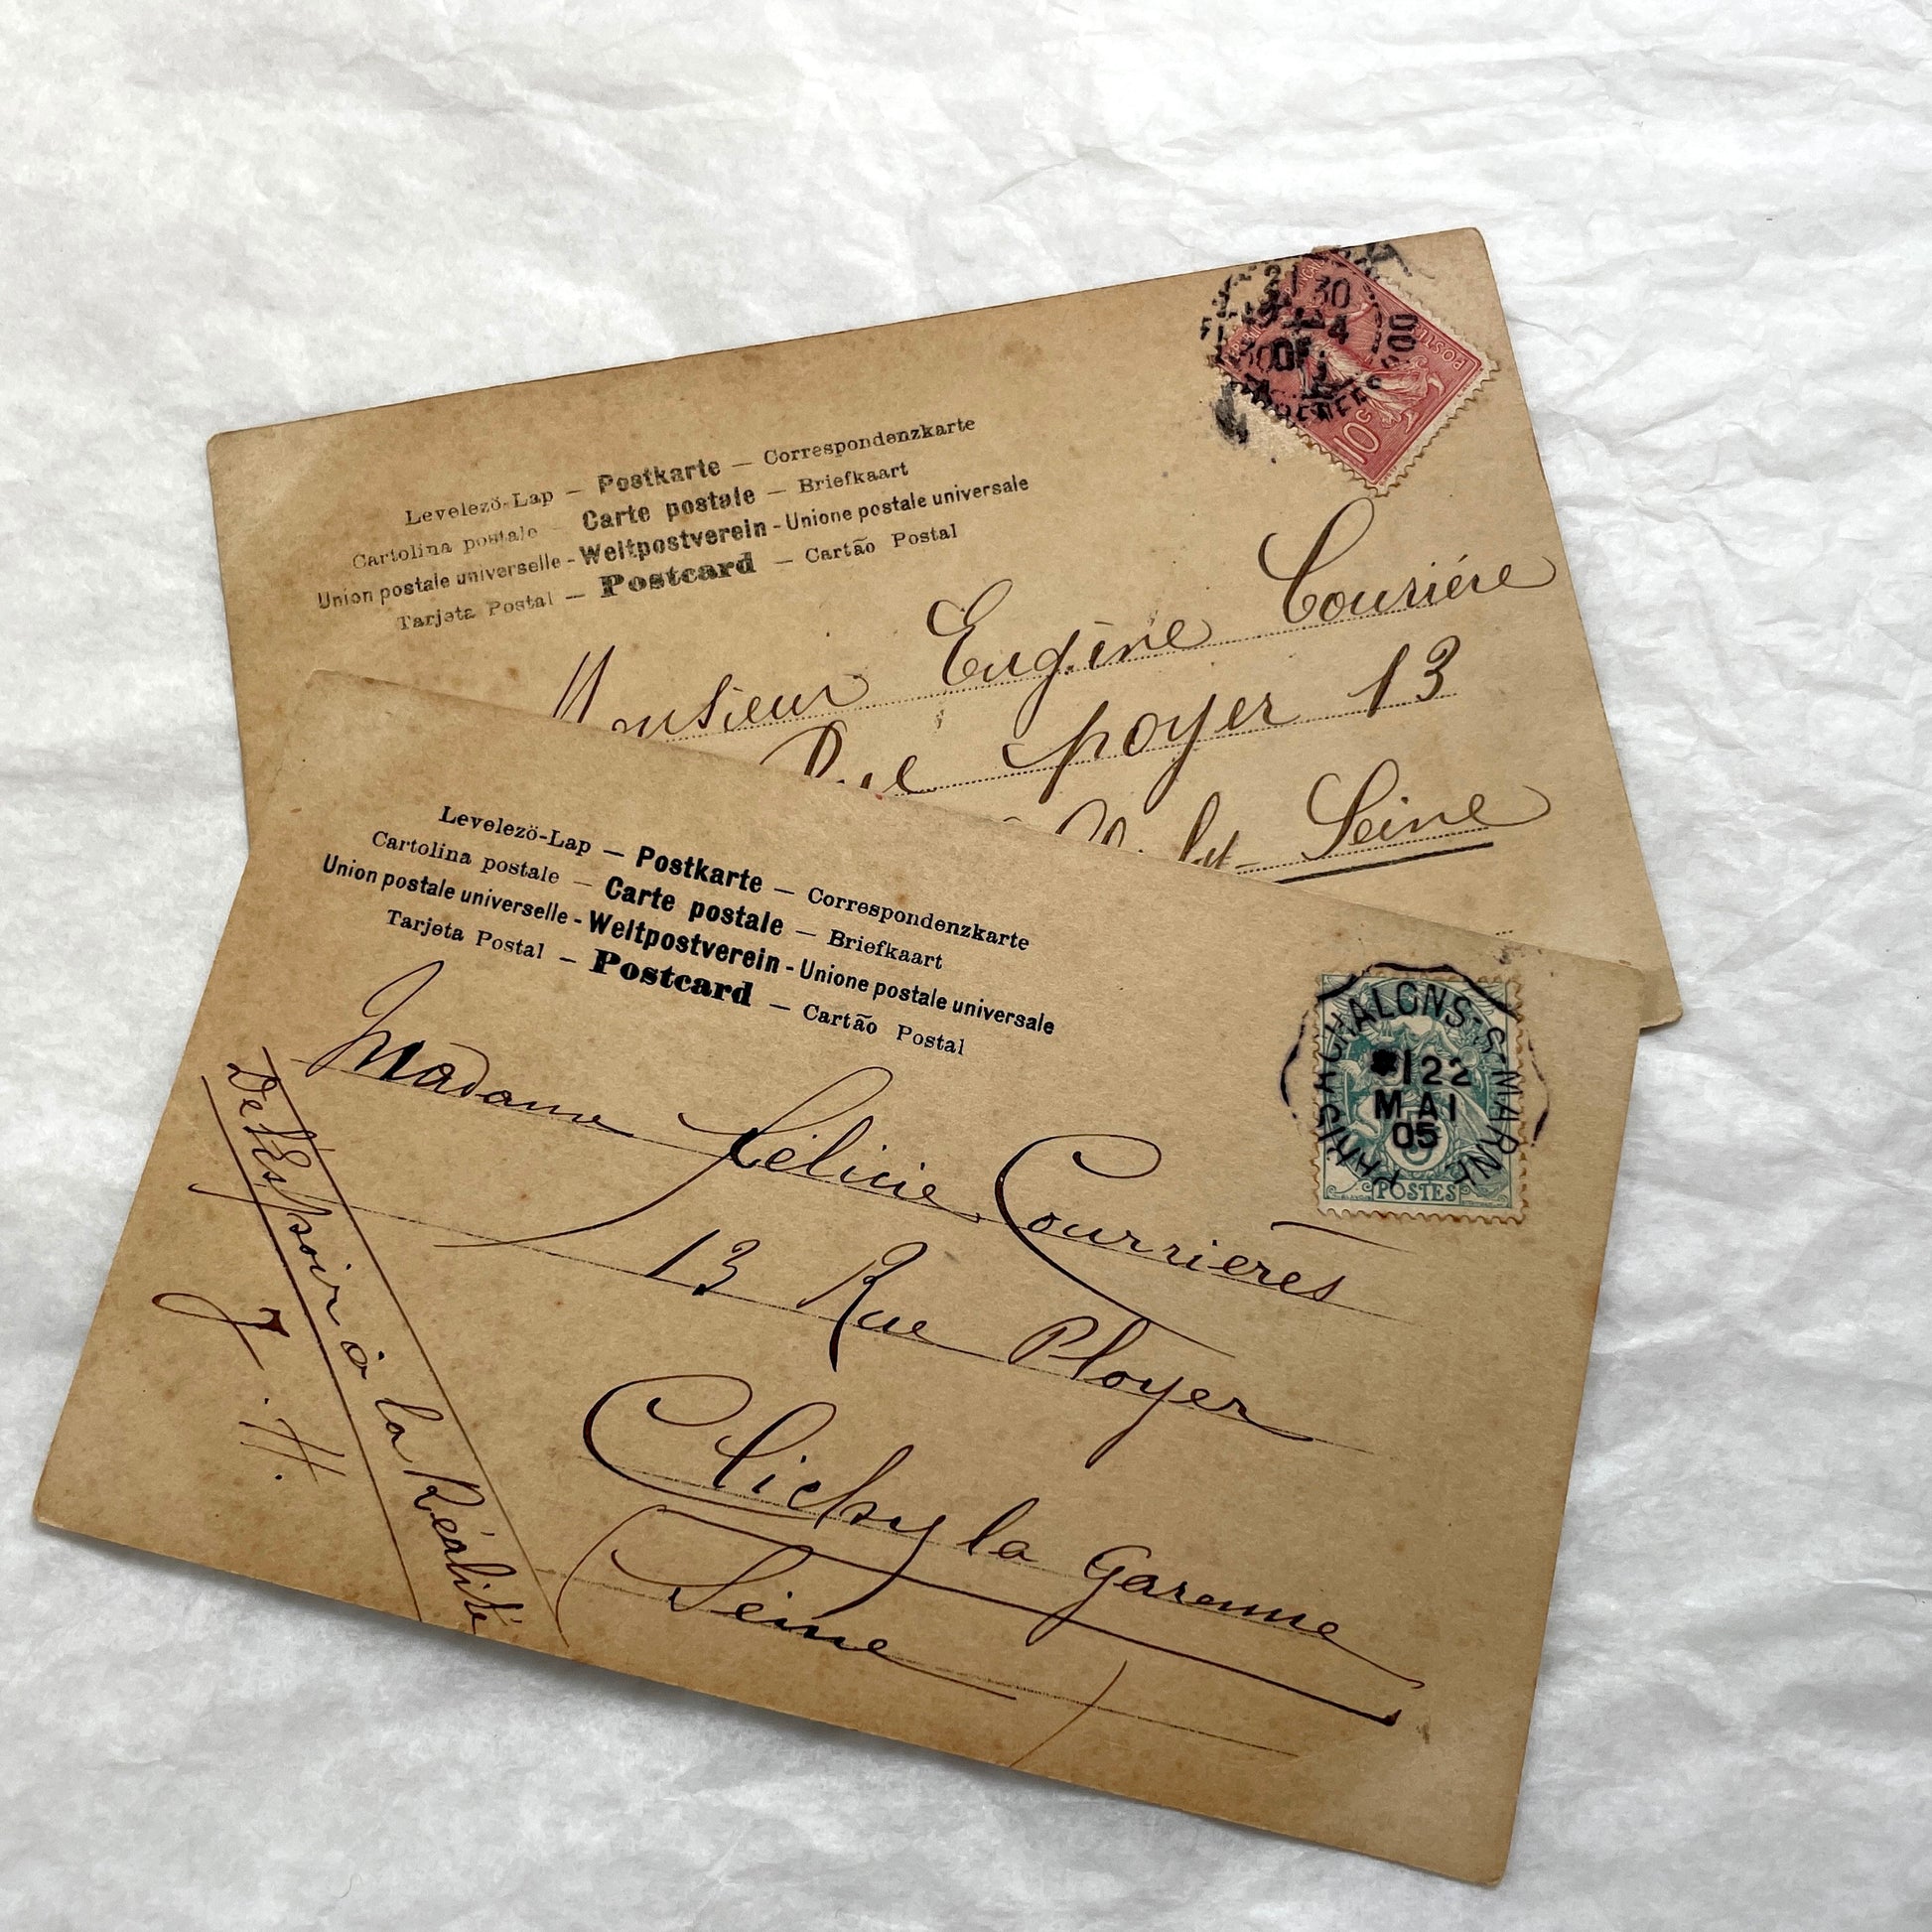 Levelezö-Lap — Postkarte — Correspondenzkarte
Cartolina postale — Carte postale — Briefkaart
Union postale universelle - Weltpostverein - Unione postale universale
Tarjeta Postal — Postcard — Cartão Postal
30
10c
POSTES
Monsieur Eugène Courière
Rue ployer 13
Seine
Levelezö-Lap — Postkarte — Correspondenzkarte
Cartolina postale — Carte postale — Briefkaart
Union postale universelle - Weltpostverein - Unione postale universale
Tarjeta Postal — Postcard — Cartão Postal
PARIS A CHALONS-S-MARNE
22
MAI
05
5
POSTES
Madame Félicie Courrières
13 Rue Ployer
Clichy la Garenne
(Seine)
De l'Espoir à la Réalité
J. H.